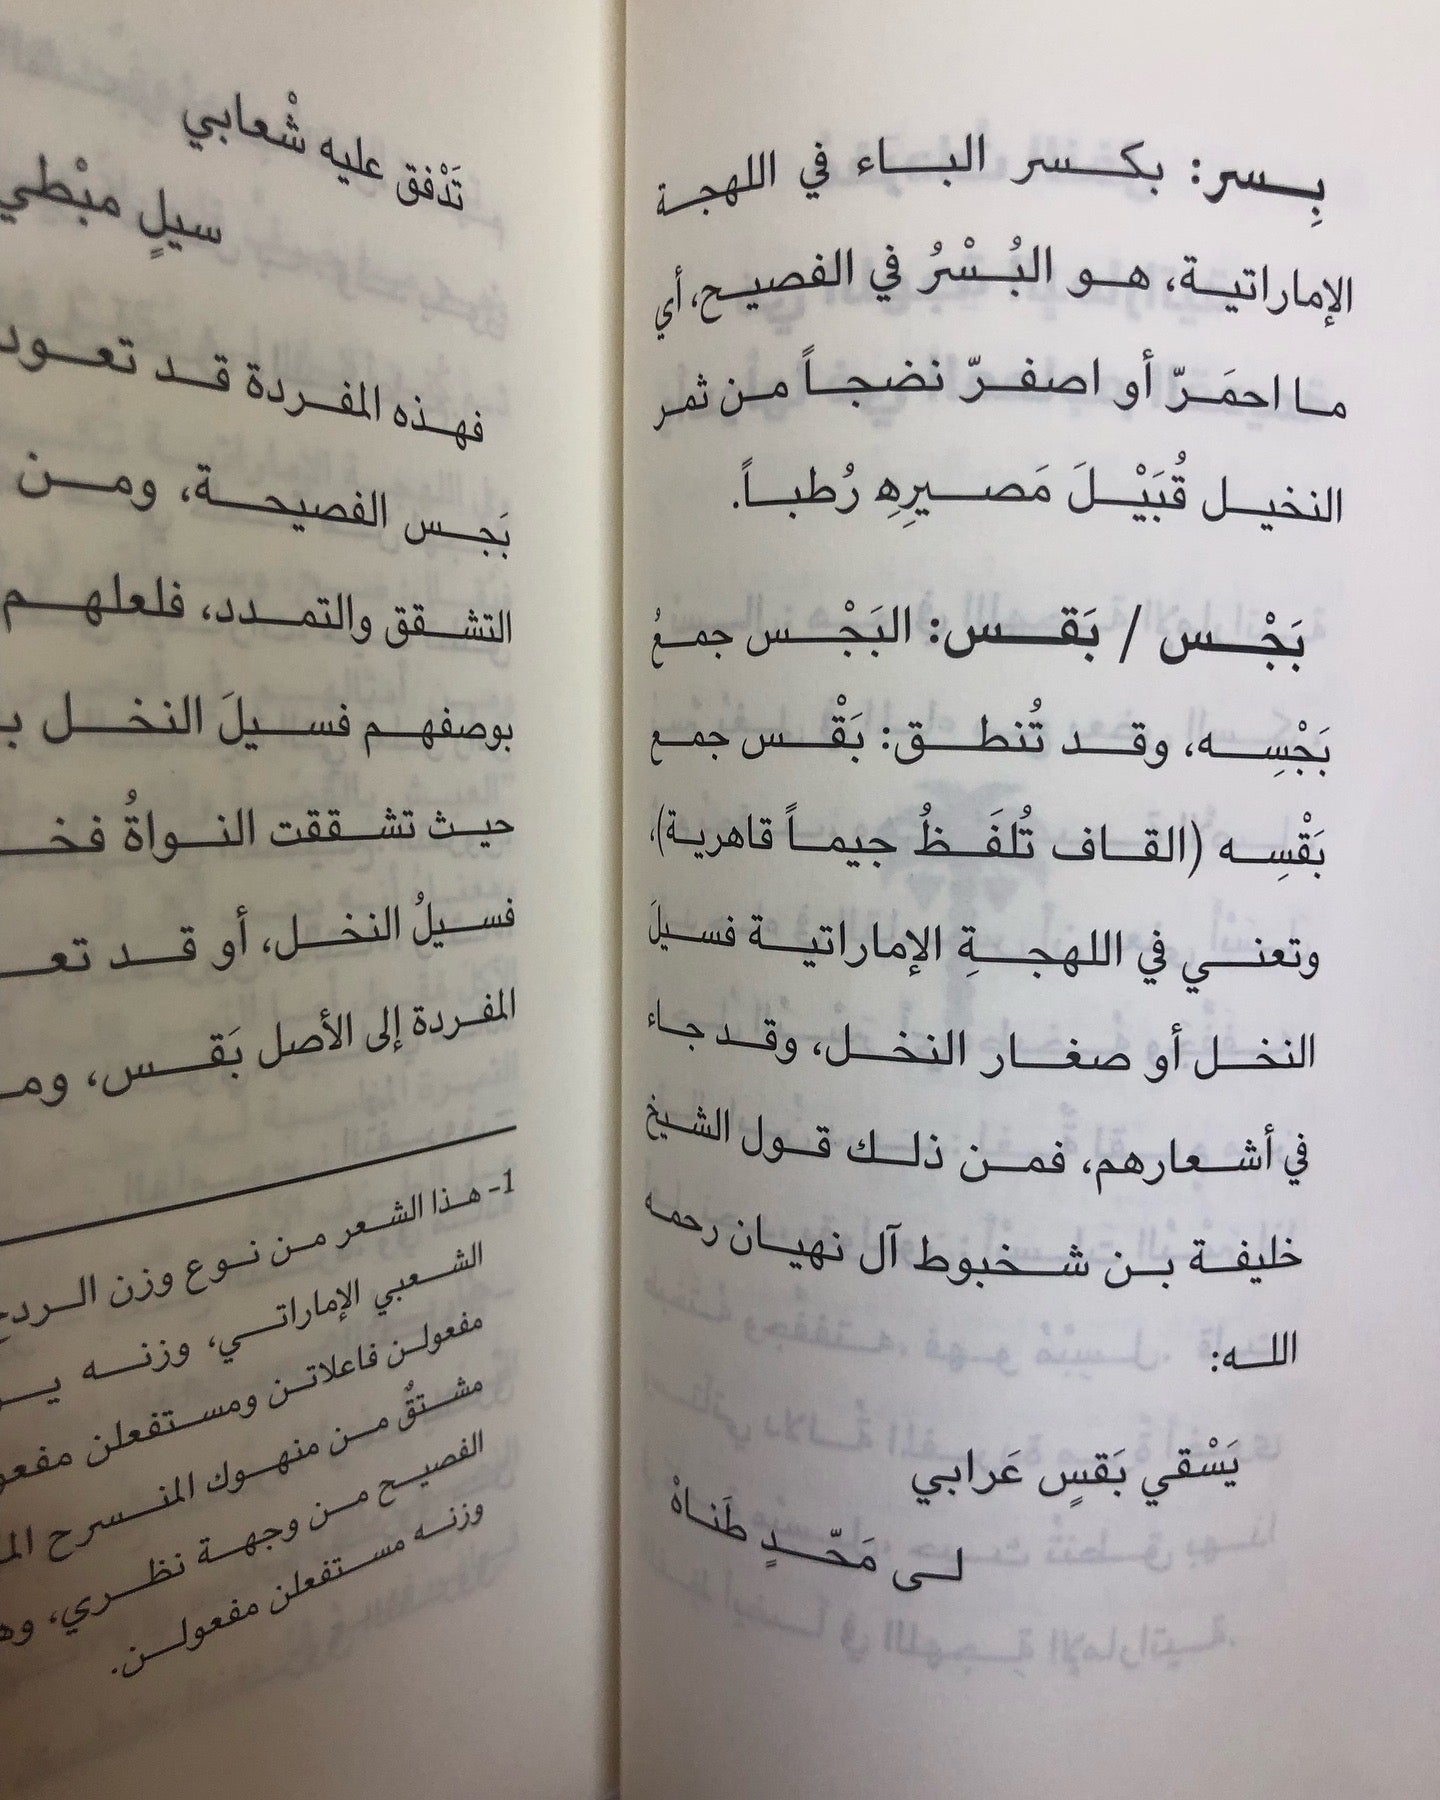 بِسر: بكسر الباء في اللهجة
الإماراتية، هو البُسْرُ في الفصيح، أي
ما احمَرّ أو اصفرّ نضجاً من ثمر
النخيل قُبَيْلَ مَصيرِهِ رُطباً.
بَجْس / بَقس: البَجْس جمعُ
بَجْسِه، وقد تُنطق: بَقْس جمع
بَقْسِه (القاف تُلفَظُ جيماً قاهرية)،
وتعني في اللهجةِ الإماراتية فسيلَ
النخل أو صغار النخل، وقد جاء
في أشعارهم، فمن ذلك قول الشيخ
خليفة بن شخبوط آل نهيان رحمه
الله:
يَسْقي بَقسٍ عَرابي
لى مَحّدٍ طَناهْ
تَدْفق عليه شْعابي
سيلٍ مبْطي
فهذه المفردة قد تعود
بَجس الفصيحة، ومن
التشقق والتمدد، فلعلهم
بوصفهم فسيلَ النخل
حيث تشققت النواةُ
فسيلُ النخل، أو قد
المفردة إلى الأصل بَقس،
1- هذا الشعر من نوع وزن
الشعبي الإماراتي، وزنه
مفعولن فاعلاتن ومستفعلن
مشتقٌ من منهوك المنسرح
الفصيح من وجهة نظري،
وزنه مستفعلن مفعولن.